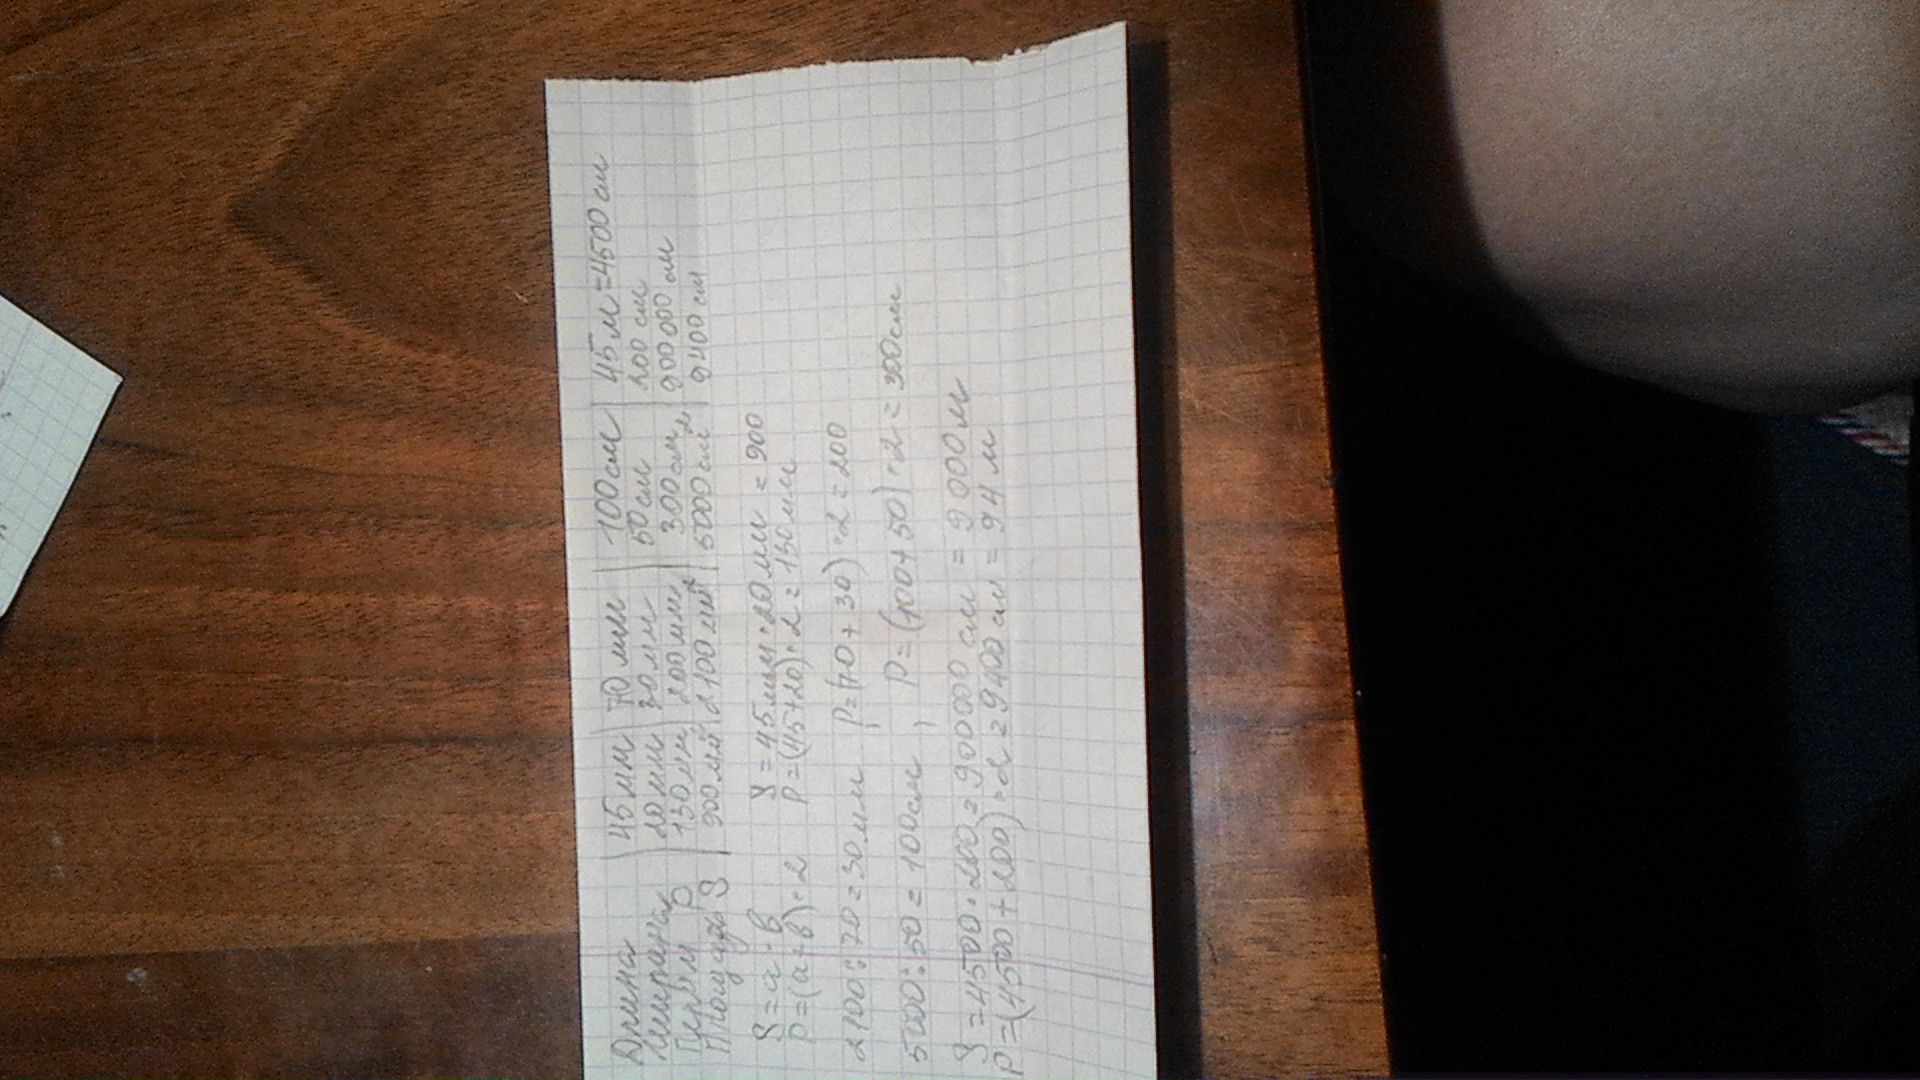 Длина | 45 мм | 70 мм | 100 см | 45 м = 4500 см
Ширина | 20 мм | 30 мм | 50 см | 200 см
Перим P | 130 мм | 200 мм | 300 см | 900 000 см
Площадь S | 900 мм² | 2100 мм² | 5000 см² | 9400 см
S = a · b S = 45 мм · 20 мм = 900
P = (a + b) · 2 P = (45+20) · 2 = 130 мм
2100 : 70 = 30 мм, P = (70 + 30) · 2 = 200
5000 : 50 = 100 см, P = (100 + 50) · 2 = 300 см
S = 4500 · 200 = 900000 см = 9 000 м
P = (4500 + 200) · 2 = 9400 см = 94 м